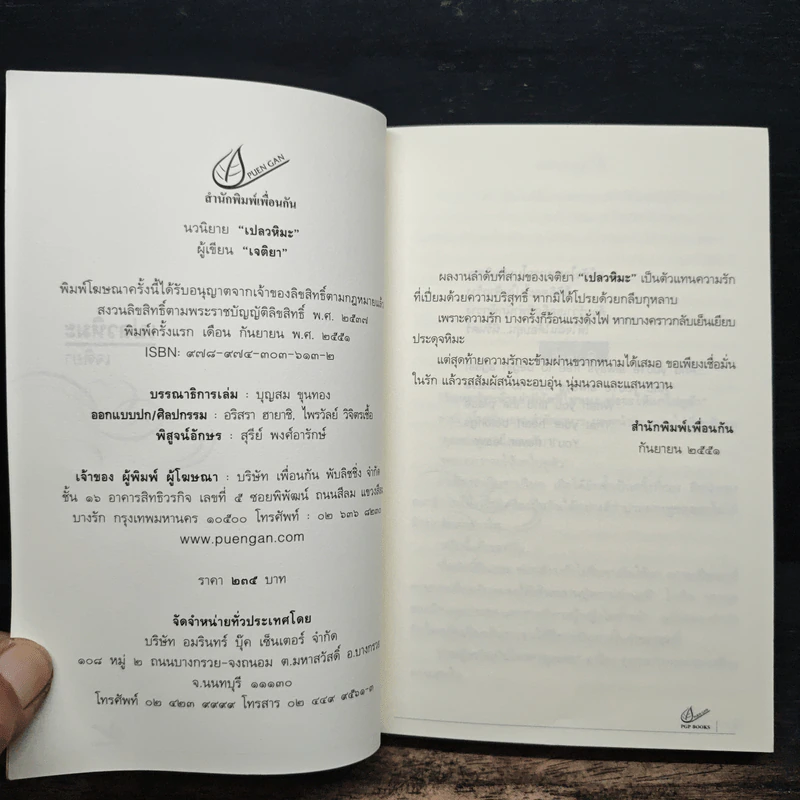 PUEN GAN
สำนักพิมพ์เพื่อนกัน
นวนิยาย “เปลวหิมะ”
ผู้เขียน “เจติยา”
พิมพ์โฆษณาครั้งนี้ได้รับอนุญาตจากเจ้าของลิขสิทธิ์ตามกฎหมายแล้ว
สงวนลิขสิทธิ์ตามพระราชบัญญัติลิขสิทธิ์ พ.ศ. ๒๕๓๗
พิมพ์ครั้งแรก เดือน กันยายน พ.ศ. ๒๕๕๑
ISBN: ๙๗๘-๙๗๔-๓๐๓-๖๑๓-๒
บรรณาธิการเล่ม : บุญสม ขุนทอง
ออกแบบปก/ศิลปกรรม : อริสรา ฮายาชิ, ไพรวัลย์ วิจิตรเชื้อ
พิสูจน์อักษร : สุรีย์ พงศ์อารักษ์
เจ้าของ ผู้พิมพ์ ผู้โฆษณา : บริษัท เพื่อนกัน พับลิชชิ่ง จำกัด
ชั้น ๑๖ อาคารสิทธิวรกิจ เลขที่ ๕ ซอยพิพัฒน์ ถนนสีลม แขวงสีลม
บางรัก กรุงเทพมหานคร ๑๐๕๐๐ โทรศัพท์ : ๐๒ ๖๓๖
www.puengan.com
ราคา ๒๓๕ บาท
จัดจำหน่ายทั่วประเทศโดย
บริษัท อมรินทร์ บุ๊ค เซ็นเตอร์ จำกัด
๑๐๘ หมู่ ๒ ถนนบางกรวย-จงถนอม ต.มหาสวัสดิ์ อ.บางกรวย
จ.นนทบุรี ๑๑๑๓๐
โทรศัพท์ ๐๒ ๔๒๓ ๙๙๙๙ โทรสาร ๐๒ ๔๔๙
ผลงานลำดับที่สามของเจติยา “เปลวหิมะ” เป็นตัวแทนความรัก
ที่เปี่ยมด้วยความบริสุทธิ์ หากมิได้โปรยด้วยกลีบกุหลาบ
เพราะความรัก บางครั้งก็ร้อนแรงดั่งไฟ หากบางคราวกลับเย็นเยียบ
ประดุจหิมะ
แต่สุดท้ายความรักจะข้ามผ่านขวากหนามได้เสมอ ขอเพียงเชื่อมั่น
ในรัก แล้วรสสัมผัสนั้นจะอบอุ่น นุ่มนวลและแสนหวาน
สำนักพิมพ์เพื่อนกัน
กันยายน ๒๕๕๑
PGP BOOKS